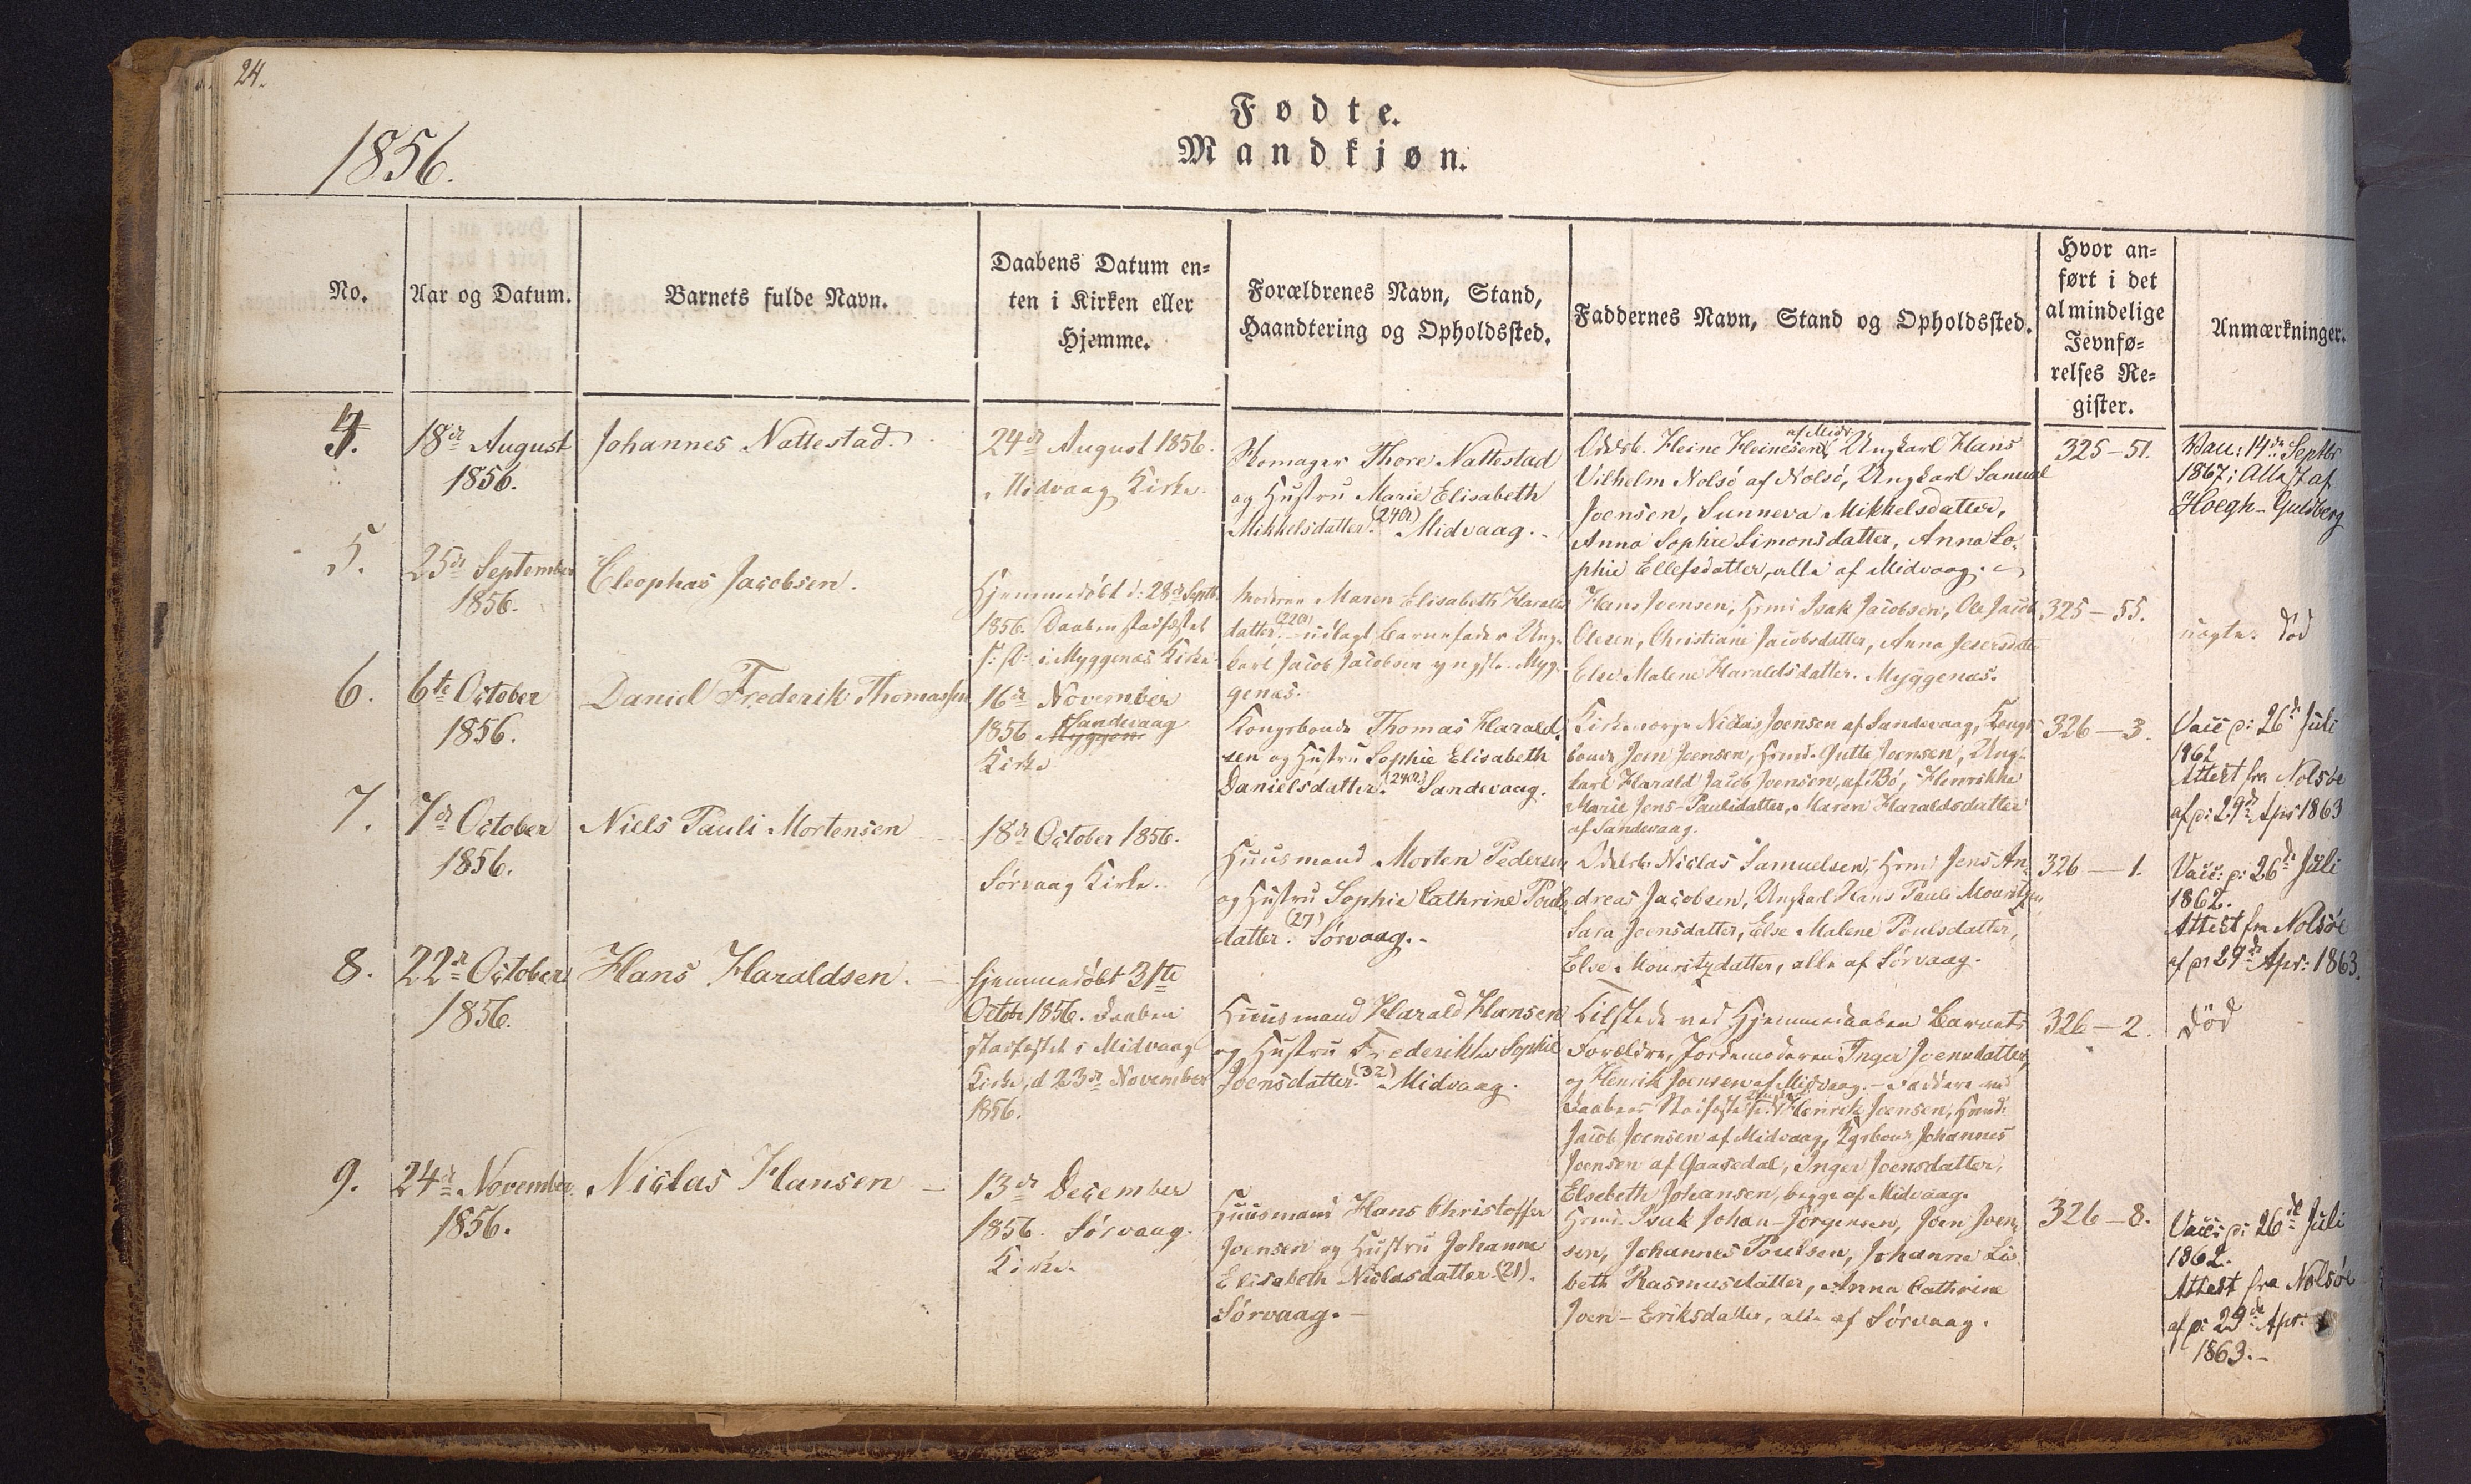 24.
1856.
Fødte.
Mandkjøn.
No.
Aar og Datum.
Barnets fulde Navn.
Daabens Datum en-
ten i Kirken eller
Hjemme.
Forældrenes Navn, Stand,
Haandtering og Opholdssted.
Faddernes Navn, Stand og Opholdssted.
Hvor an-
ført i det
almindelige
Jevnfø-
relses Re-
gister.
Anmærkninger.
4.
18de August
1856.
Johannes Nattestad.
24de August 1856.
Midvaag Kirke.
Thore Nattestad
og Hustru Marie Elisabeth
Mikkelsdatter. (24 a) Midvaag.
Odelsb. Heine Heinesen af Midv. Ungkarl Hans
Vilhelm Nolsö af Nolsö, Ungkarl Samuel
Joensen, Sunneva Mikkelsdatter,
Anna Sophie Simonsdatter, Anna So-
phie Ellefsdatter, alle af Midvaag.
325–51.
Vacc: 14de Septbr
1867; Attest af
Hoegh-Guldberg
5.
25de September
1856.
Cleophas Jacobsen.
Hjemmedöbt d: 28de Septb.
1856. Daaben stadfæstet
i Myggenæs Kirke
Moderen Maren Elisabeth Haralds-
datter. (22 a) udlagt Barnefader Ung-
karl Jacob Jacobsen yngste. Myg-
genæs.
Hans Joensen, Hrmd Isak Jacobsen, Ole Jacob
Olesen, Christiane Jacobsdatter, Anna
Else Malene Haraldsdatter. Myggenæs.
325–55.
uægte. död
6.
6te October
1856.
Daniel Frederik Thomassen
16de November
1856. Sandevaag
Kirke
Kongsbonde Thomas Harald-
sen og Hustru Sophie Elisabeth
Danielsdatter. (24 a) Sandevaag.
Kirkeværge Niclas Joensen af Sandevaag, Kongs-
bonde Joen Joensen, Hrmd. Gutte Joensen, Ung-
karl Harald Jacob Joensen, af Bö, Henrikke
Marie Jens-Paulidatter, Maren Haraldsdatter
af Sandevaag.
326–3.
Vacc p: 26de Juli
1862
Attest fra Nolsøe
af p: 29de Apr 1863
7.
7de October
1856.
Niels Pauli Mortensen
18de October 1856.
Sörvaag Kirke.
Huusmand Morten Pedersen
og Hustru Sophie Cathrine Pouls-
datter. (27) Sörvaag.
Odelsb. Niclas Samuelsen, Hrmd Jens An-
dreas Jacobsen, Ungkarl Hans Pauli Mouritzen
Sara Joensdatter, Else Malene Poulsdatter,
Else Mouritzdatter, alle af Sörvaag.
326–1.
Vacc: p: 26de Juli
1862.
Attest fra Nolsøe
af p: 29de Apr: 1863.
8.
22de October
1856.
Hans Haraldsen.
Hjemmedöbt 31te
Octobr 1856. Daaben
stadfæstet i Midvaag
Kirke, d 23de November
1856.
Huusmand Harald Hansen
og Hustru Frederikke Sophie
Joensdatter. (32) Midvaag.
Tilstede ved Hjemmedaaben Barnets
Forældre, Jordemoderen Inger Joensdatter,
og Henrik Joensen af Midvaag. – Faddere ved
Daabens Stadfæstelse: Henrik Joensen, Hrmd:
Jacob Joensen af Midvaag, Kgsbonde Johannes
Joensen af Gaasedal, Inger Joensdatter,
Elsebeth Johansen, begge af Midvaag.
326–2.
död
9.
24de November
1856.
Niclas Hansen
13de December
1856. Sörvaag
Kirke.
Huusmand Hans Christoffer
Joensen og Hustru Johanne
Elisabeth Niclasdatter. (21).
Sörvaag.
Hrmd. Isak Johan-Jörgensen, Joen Joen-
sen, Johannes Poulsen, Johanne Lis-
beth Rasmusdatter, Anna Cathrine
Joen-Eriksdatter, alle af Sörvaag.
326–8.
Vacc: p: 26de Juli
1862.
Attest fra Nolsøe
af p: 29de Apr:
1863.